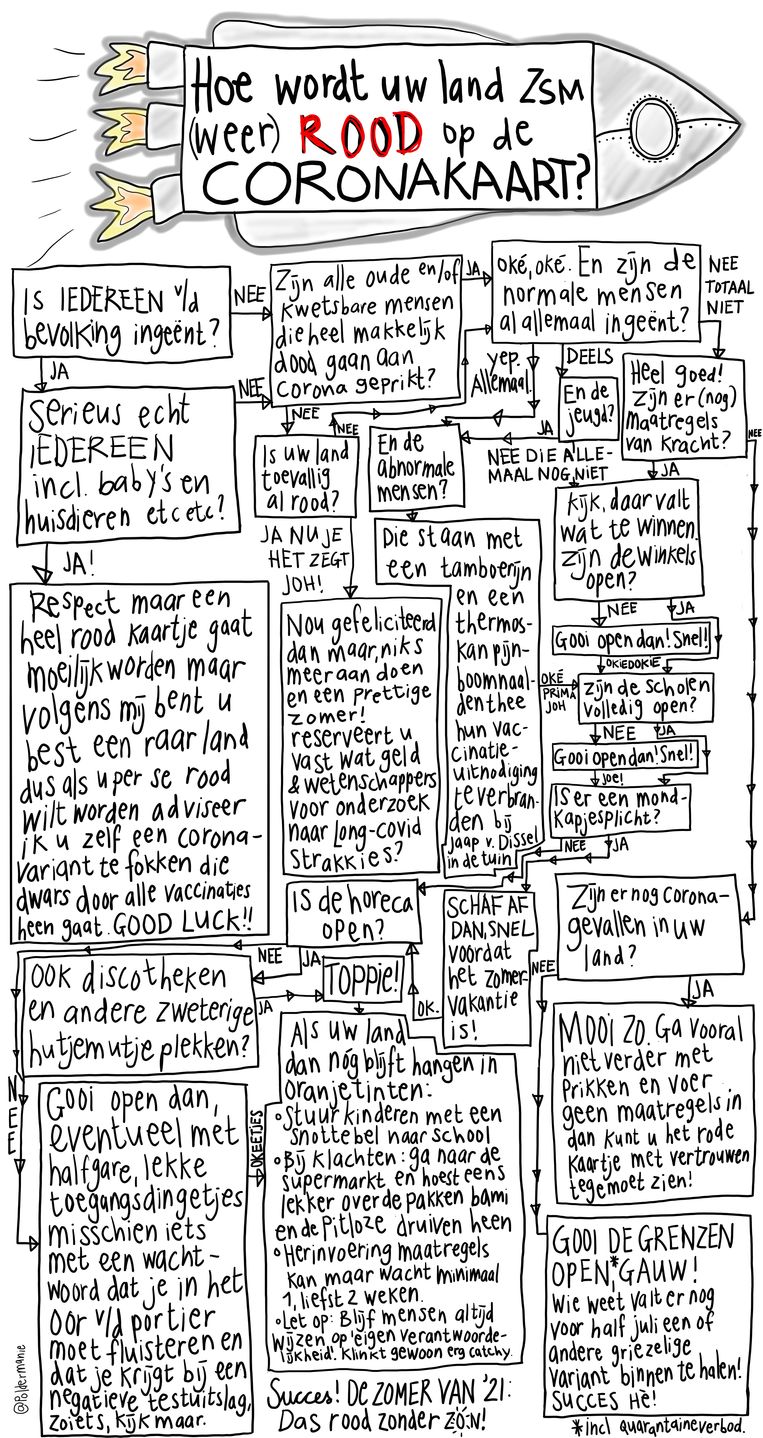 Hoe wordt uw land ZSM
(weer) ROOD op de
CORONAKAART?
Is IEDEREEN v/d
bevolking ingeënt?
NEE
JA
Zijn alle oude en/of
kwetsbare mensen
die heel makkelijk
dood gaan aan
corona geprikt?
JA
NEE
oké, oké. En zijn de
normale mensen
al allemaal ingeënt?
NEE
TOTAAL
NIET
yep.
Allemaal.
DEELS
Serieus echt
IEDEREEN
incl. baby's en
huisdieren etc etc?
NEE
JA!
Is uw land
toevallig
al rood?
NEE
JA NU JE
HET ZEGT
JOH!
En de
abnormale
mensen?
En de
jeugd?
JA
NEE DIE ALLE-
MAAL NOG NIET
Heel goed!
Zijn er (nog)
maatregels
van kracht?
NEE
JA
Respect maar een
heel rood kaartje gaat
moeilijk worden maar
volgens mij bent u
best een raar land
dus als u per se rood
wilt worden adviseer
ik u zelf een corona-
variant te fokken die
dwars door alle vaccinatjes
heen gaat. GOOD LUCK!!
Nou gefeliciteerd
dan maar, niks
meer aan doen
en een prettige
zomer!
reserveert u
vast wat geld
& wetenschappers
voor onderzoek
naar long-covid
strakkies?
Die staan met
een tamboerijn
en een
thermos-
kan pijn-
boomnaal-
denthee
hun vac-
cinatie-
uitnodiging
te verbran-
den bij
Jaap v. Dissel
in de tuin
OKÉ
PRIMA
JOH
kijk, daar valt
wat te winnen.
Zijn de winkels
open?
NEE
JA
Gooi open dan! Snel!
OKIEDOKIE
Zijn de scholen
volledig open?
NEE
JA
Gooi open dan! Snel!
JOE!
Is er een mond-
kapjesplicht?
NEE
JA
Is de horeca
open?
NEE
JA
SCHAF AF
DAN, SNEL
voordat
het zomer-
vakantie
is!
OK.
Zijn er nog corona-
gevallen in uw
land?
NEE
JA
OOK discotheken
en andere zweterige
hutjemutje plekken?
JA
NEE
TOPPIE!
Gooi open dan,
eventueel met
halfgare, lekke
toegangsdingetjes
misschien iets
met een wacht-
woord dat je in het
oor v/d portier
moet fluisteren en
dat je krijgt bij een
negatieve testuitslag,
zoiets, kijk maar.
OKEETJES
Als uw land
dan nóg blijft hangen in
oranjetinten:
Stuur kinderen met een
snottebel naar school
Bij klachten: ga naar de
supermarkt en hoest eens
lekker over de pakken bami
en de pitloze druiven heen
Herinvoering maatregels
kan maar wacht minimaal
1, liefst 2 weken.
Let op: Blijf mensen altijd
wijzen op 'eigen verantwoorde-
lijkheid'. Klinkt gewoon erg catchy.
Mooi zo. Ga vooral
niet verder met
prikken en voer
geen maatregels in
dan kunt u het rode
kaartje met vertrouwen
tegemoet zien!
GOOI DE GRENZEN
OPEN,* GAUW!
Wie weet valt er nog
voor half juli een of
andere griezelige
variant binnen te halen!
SUCCES HÈ!
*incl quarantaineverbod.
Succes! DE ZOMER VAN '21:
Das rood zonder ZÓN!
@Poldermanie